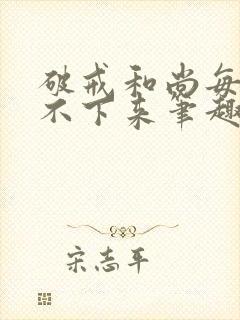 破戒和尚每
不下来笔趣
宋志平